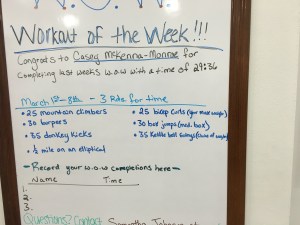 W.O.W
Workout of the Week!!!
Congrats to Casey McKenna-Monroe for
completing last week's w.o.w with a time of 29:36
March 12-8th - 3 Rds for time
• 25 mountain climbers
• 30 burpees
• 35 donkey kicks
• 1/2 mile on an elliptical
• 25 bicep curls (your must weight)
• 30 box jumps (med. box)
• 35 Kettle bell swings (choice of weight)
- Record your w.o.w completions here -
Name Time
1.
2.
3.
Questions? Contact Samantha Johnson at